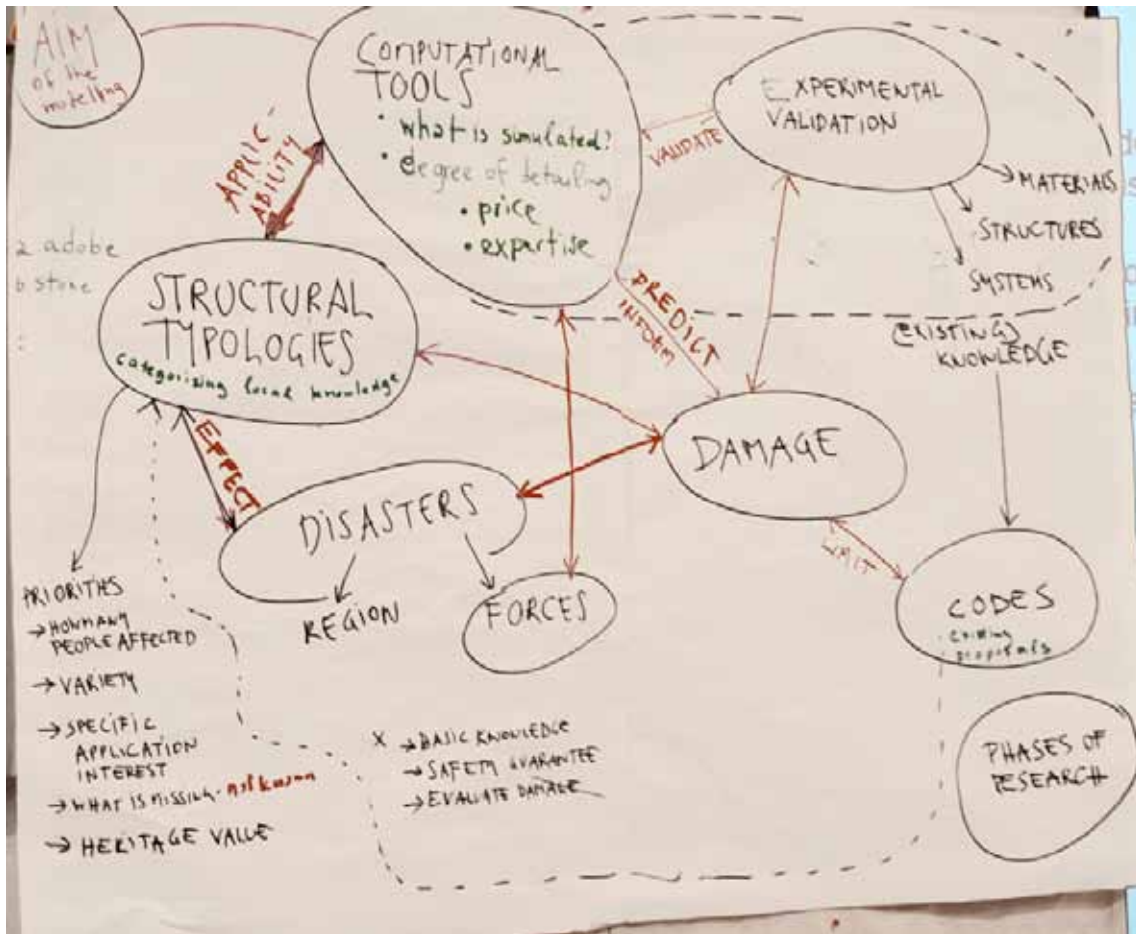 AIM
of the
modelling
COMPUTATIONAL
TOOLS
• what is simulated?
• degree of detailing
• price
• expertise
EXPERIMENTAL
VALIDATION
VALIDATE
→ MATERIALS
STRUCTURES
SYSTEMS
APPLIC-
ABILITY
2 adobe
b stone
STRUCTURAL
TYPOLOGIES
categorizing local knowledge
PREDICT
INFORM
(EXISTING)
KNOWLEDGE
EFFECT
DAMAGE
DISASTERS
LIMIT
REGION
FORCES
CODES
existing
proposals
PRIORITIES
→ HOW MANY
PEOPLE AFFECTED
→ VARIETY
→ SPECIFIC
APPLICATION
INTEREST
→ WHAT IS MISSING - not known
→ HERITAGE VALUE
X → BASIC KNOWLEDGE
→ SAFETY GUARANTEE
→ EVALUATE DAMAGE
PHASES OF
RESEARCH